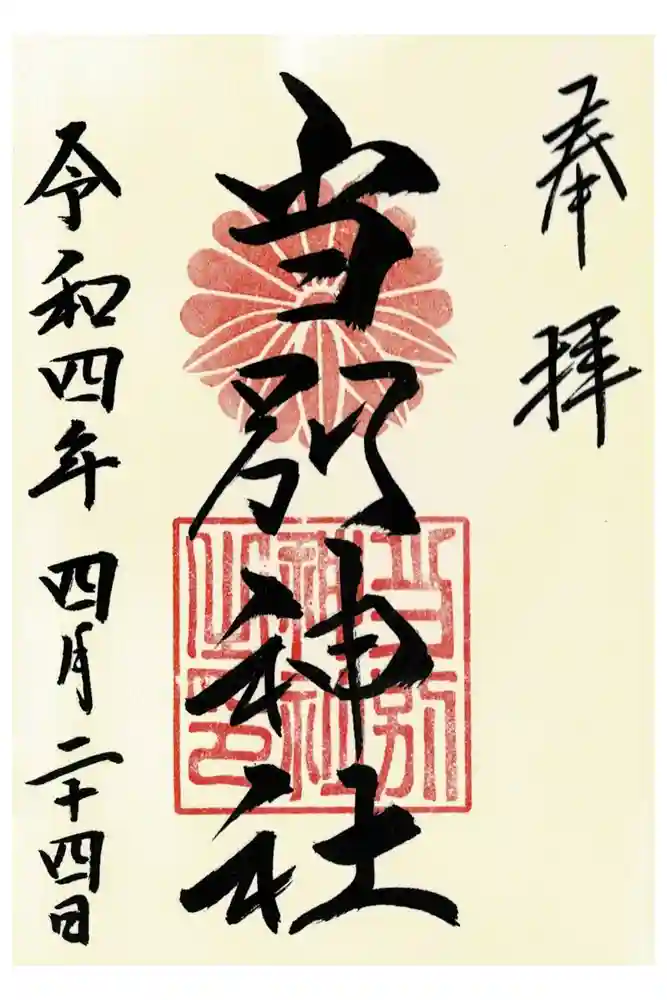 奉拝
当別神社
当別神社之印
令和四年 四月二十四日